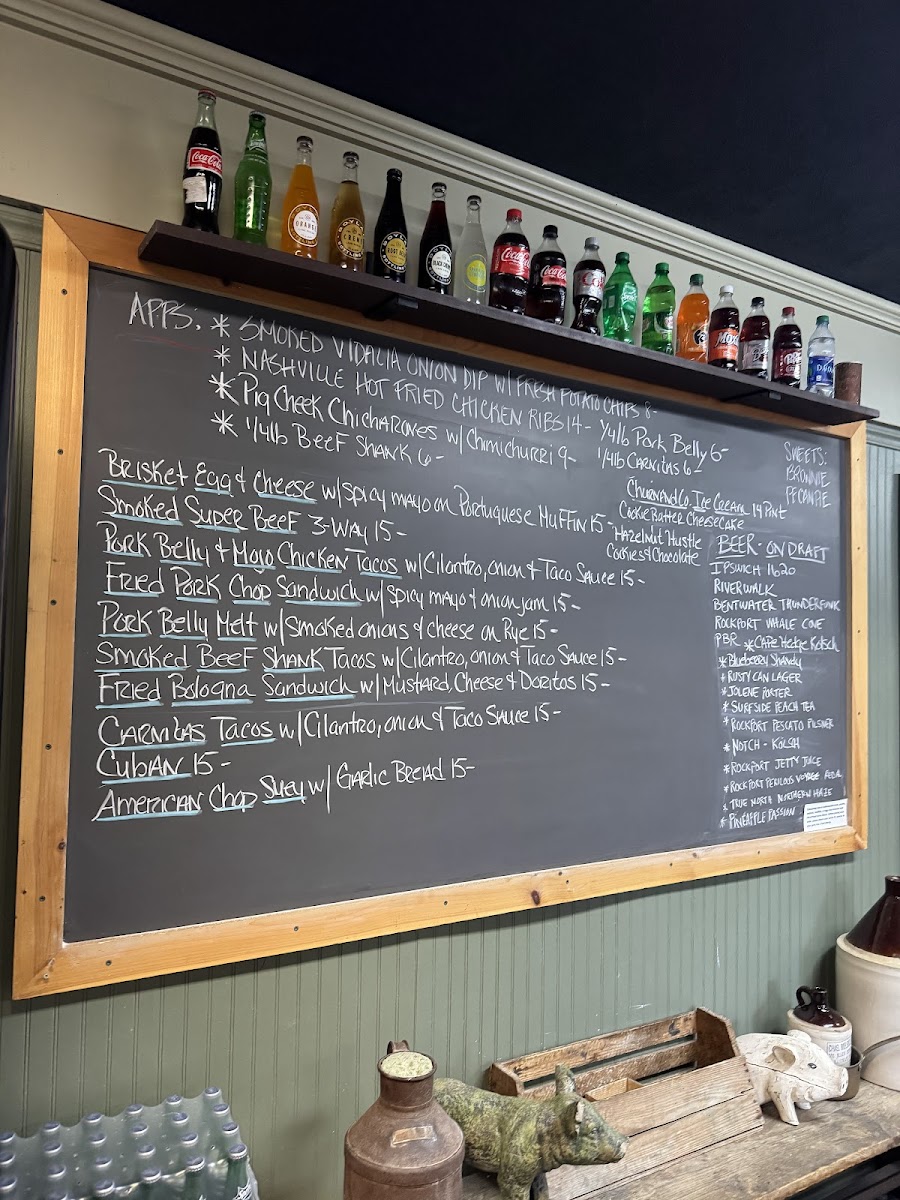 APPS. * SMOKED VIDALIA ONION DIP W/ FRESH POTATO CHIPS 8-
* NASHVILLE HOT FRIED CHICKEN RIBS 14-
* Pig Cheek Chicharones w/ Chimichurri 9-
* 1/4lb Beef Shank 6-
1/4lb Pork Belly 6-
1/4lb Carnitas 6-
Brisket Egg & Cheese w/ spicy mayo on Portuguese Muffin 15-
Smoked Super Beef 3-Way 15-
Pork Belly & Moyo Chicken Tacos w/ Cilantro, onion & Taco Sauce 15-
Fried Pork Chop Sandwich w/ spicy mayo & onion jam 15-
Pork Belly Melt w/ Smoked onions & cheese on Rye 15-
Smoked Beef Shank Tacos w/ Cilantro, onion & Taco Sauce 15-
Fried Bologna Sandwich w/ Mustard, Cheese & Doritos 15-
Carnitas Tacos w/ Cilantro, onion & Taco Sauce 15-
Cuban 15-
American Chop Suey w/ Garlic Bread 15-
Churn and Co. Ice Cream 14 Pint
Cookie Butter Cheesecake
Hazelnut Hustle
Cookies & Chocolate
SWEETS:
BROWNIE
PECAN PIE
BEER- ON DRAFT
IPSWICH 1620
RIVERWALK
BENTWATER THUNDERFUNK
ROCKPORT WHALE COVE
PBR * CAPE Hedge Kolsch
* Blueberry Shandy
* RUSTY CAN LAGER
* JOLENE PORTER
* SURFSIDE PEACH TEA
* ROCKPORT PESCATO PILSNER
* NOTCH - KÖLSH
* ROCKPORT JETTY JUICE
* ROCKPORT PERILOUS VOYAGE
* TRUE NORTH NORTHERN HAZE
* PINEAPPLE PASSION
Coca-Cola
ORANGE
BLACK CHERRY
Coca-Cola
Moxie